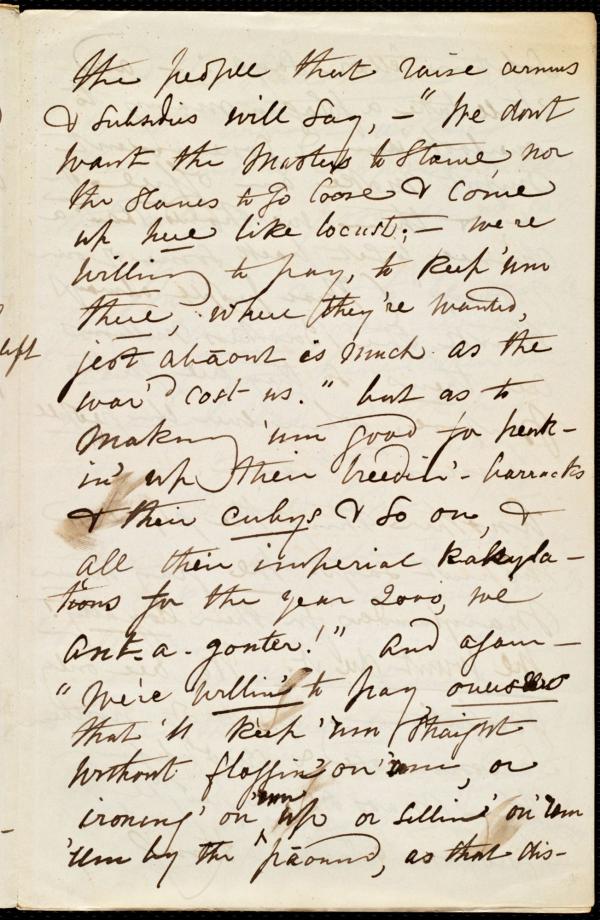 the people that raise armies
& subsidies will say, – "We dont
want the Masters to starve nor
the slaves to go loose & come
up here like locust; – we're
willing to pay, to keep 'um
there, where they're wanted,
jest abāout is much as the
war'd cost us." but as to
making 'um good for break-
in' up their breedin'-barracks
& their cubys & so on, &
all their imperial kalkyla-
tions for the year 2000, we
ant-a-gonter!" And again –
"We're willin' to pay
that 'll keep 'um straight
without floggin' on 'um, or
ironing' on 'um up or sellin' on 'um
'um by the pāound, as that dis-
left